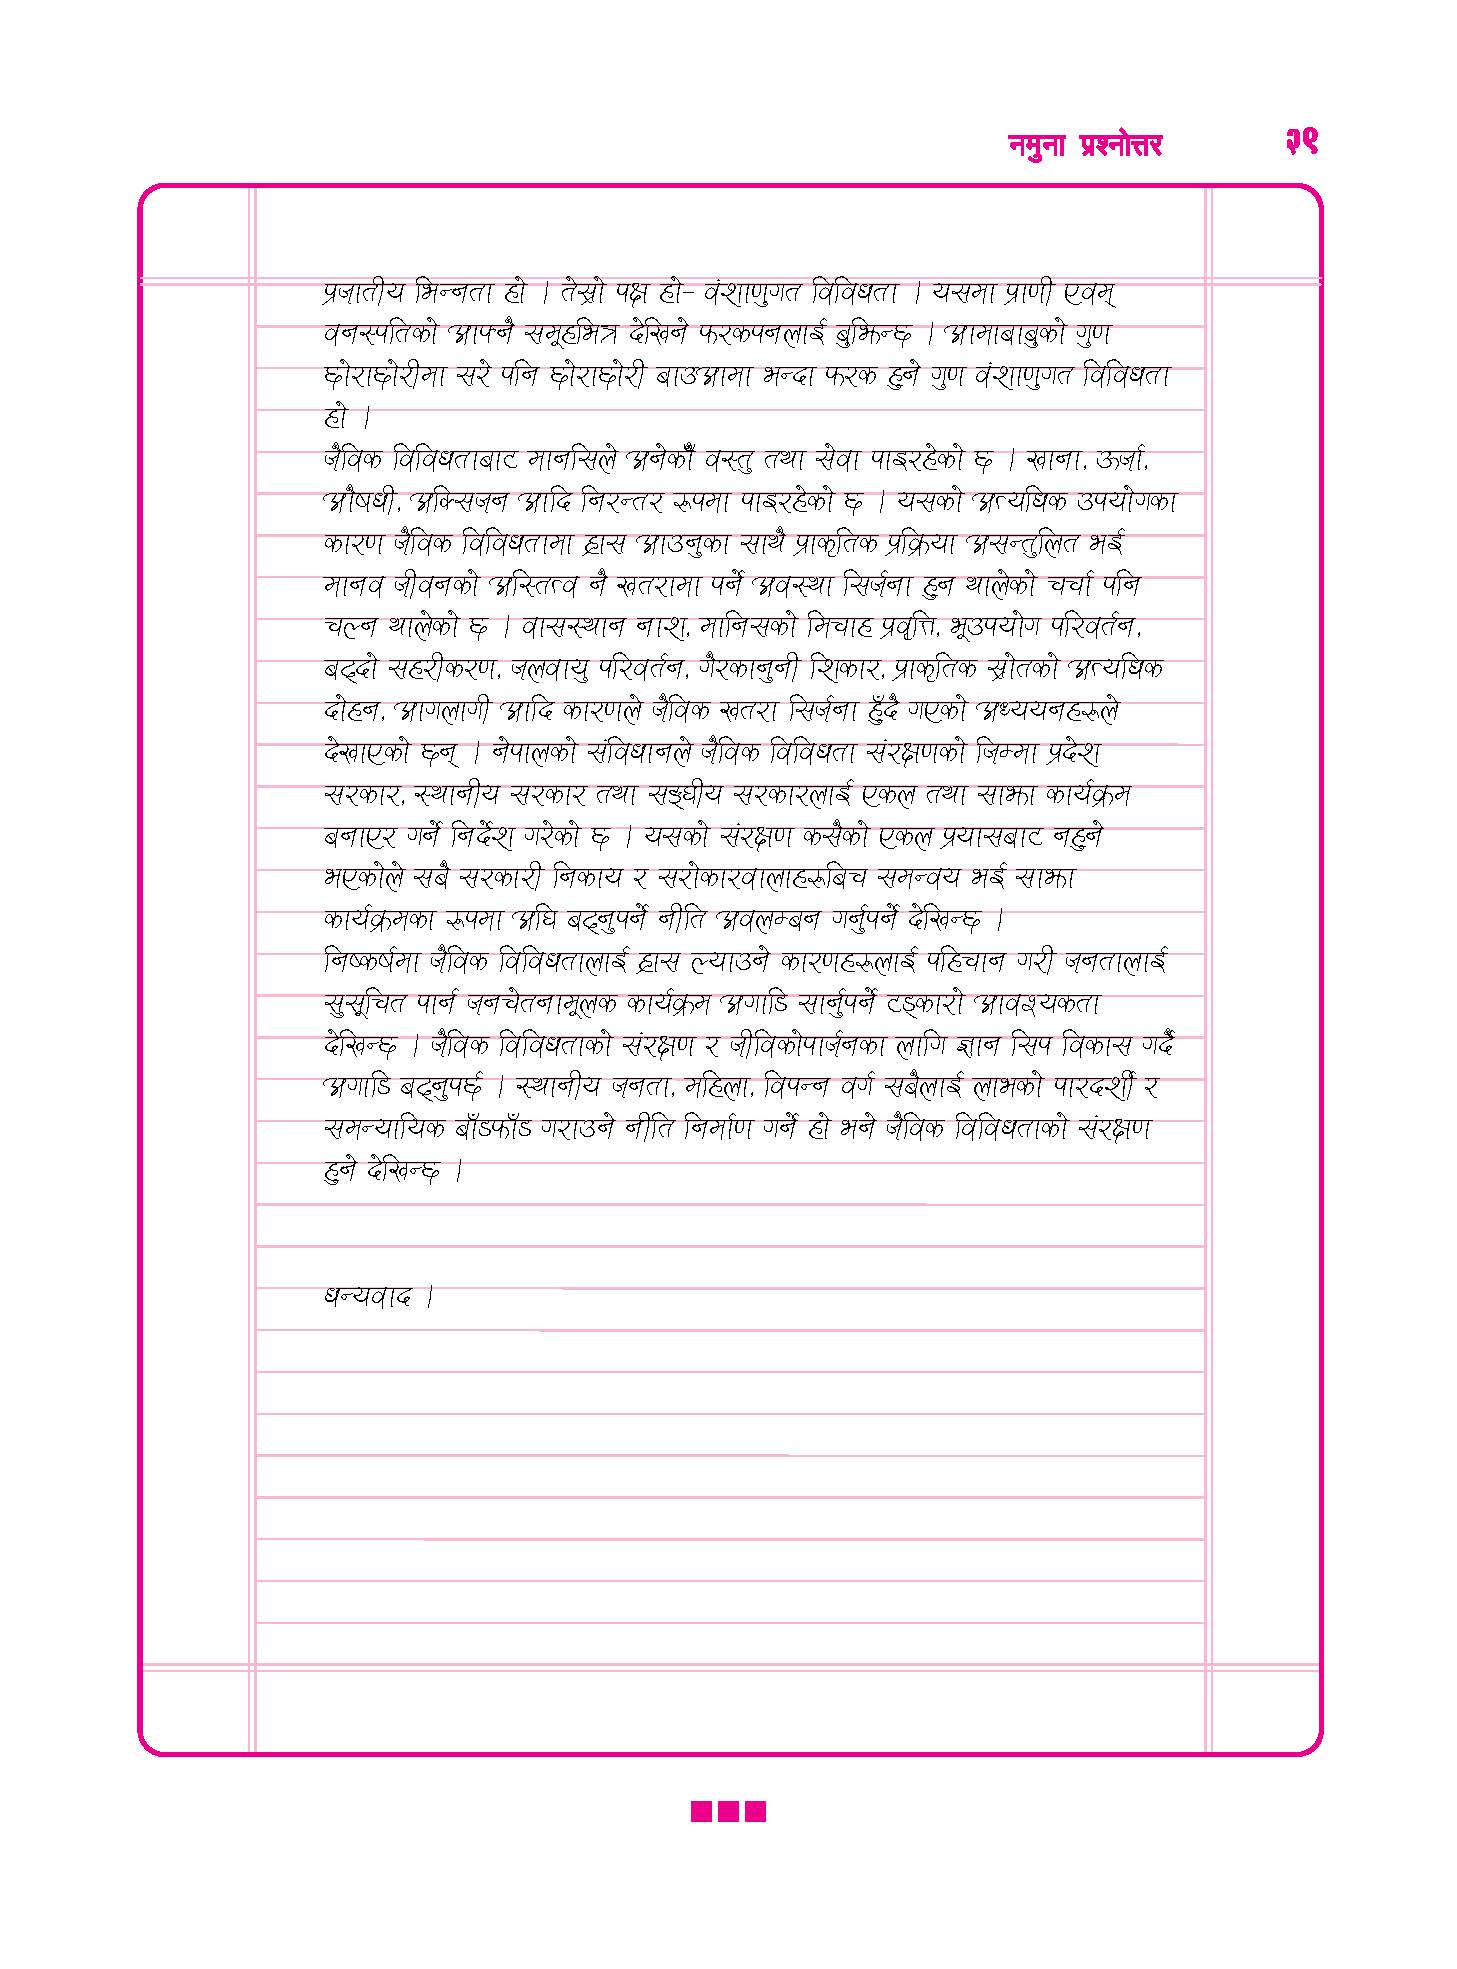 नमुना प्रश्नोत्तर २९
प्रजातीय भिन्नता हो । तेस्रो पक्ष हो- वंशाणुगत विविधता । यसमा प्राणी एवम्
वनस्पतिको आफ्नै समूहभित्र देखिने फरकपनलाई बुझिन्छ । आमाबाबुको गुण
छोराछोरीमा सरे पनि छोराछोरी बाउआमा भन्दा फरक हुने गुण वंशाणुगत विविधता
हो ।
जैविक विविधताबाट मानसिले अनेकौँ वस्तु तथा सेवा पाइरहेको छ । खाना, ऊर्जा,
औषधी, अक्सिजन आदि निरन्तर रूपमा पाइरहेको छ । यसको अत्यधिक उपयोगका
कारण जैविक विविधतामा ह्रास आउनुका साथै प्राकृतिक प्रक्रिया असन्तुलित भई
मानव जीवनको अस्तित्व नै खतरामा पर्ने अवस्था सिर्जना हुन थालेको चर्चा पनि
चल्न थालेको छ । वासस्थान नाश, मानिसको मिचाह प्रवृत्ति, भूउपयोग परिवर्तन,
बढ्दो सहरीकरण, जलवायु परिवर्तन, गैरकानुनी शिकार, प्राकृतिक स्रोतको अत्यधिक
दोहन, आगलागी आदि कारणले जैविक खतरा सिर्जना हुँदै गएको अध्ययनहरूले
देखाएको छन् । नेपालको संविधानले जैविक विविधता संरक्षणको जिम्मा प्रदेश
सरकार, स्थानीय सरकार तथा सङ्घीय सरकारलाई एकल तथा साझा कार्यक्रम
बनाएर गर्ने निर्देश गरेको छ । यसको संरक्षण कसैको एकल प्रयासबाट नहुने
भएकोले सबै सरकारी निकाय र सरोकारवालाहरूबिच समन्वय भई साझा
कार्यक्रमका रूपमा अघि बढ्नुपर्ने नीति अवलम्बन गर्नुपर्ने देखिन्छ ।
निष्कर्षमा जैविक विविधतालाई ह्रास ल्याउने कारणहरूलाई पहिचान गरी जनतालाई
सुसूचित पार्न जनचेतनामूलक कार्यक्रम अगाडि सार्नुपर्ने टड्कारो आवश्यकता
देखिन्छ । जैविक विविधताको संरक्षण र जीविकोपार्जनका लागि ज्ञान सिप विकास गर्दै
अगाडि बढ्नुपर्छ । स्थानीय जनता, महिला, विपन्न वर्ग सबैलाई लाभको पारदर्शी र
समन्यायिक बाँडफाँड गराउने नीति निर्माण गर्ने हो भने जैविक विविधताको संरक्षण
हुने देखिन्छ ।
धन्यवाद ।